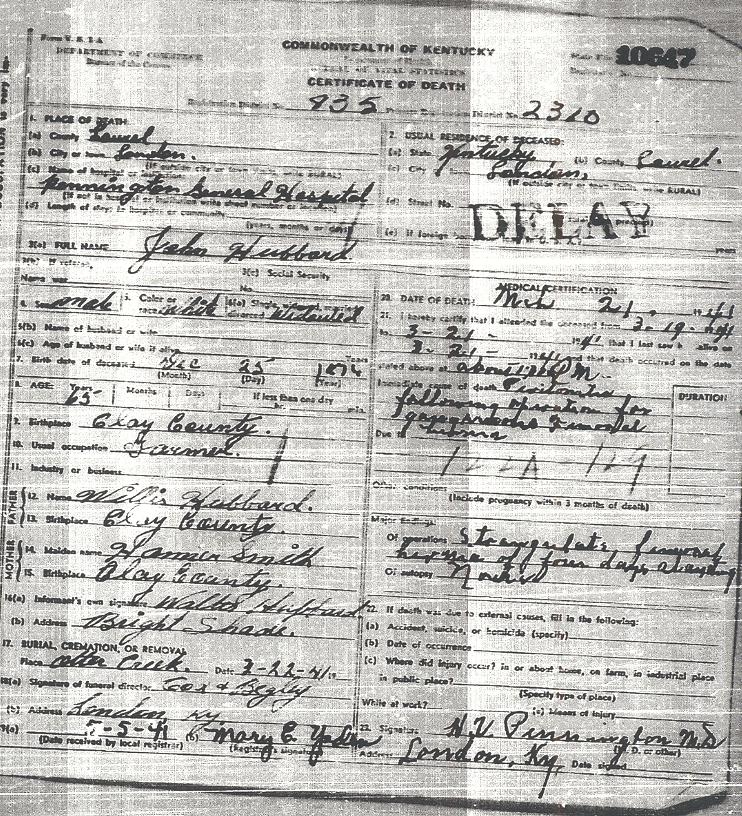 Form V. S. 1-A
COMMONWEALTH OF KENTUCKY
State File 10647
DEPARTMENT OF COMMERCE
Bureau of the Census
CERTIFICATE OF DEATH
Registration District No. 435 District No. 2310
1. PLACE OF DEATH:
(a) County Laurel
(b) City or town London.
(If outside city or town limits, write RURAL)
(c) Name of hospital
Pennington General Hospital
(d) Length of stay: In hospital or community
(years, months or days)
2. USUAL RESIDENCE OF DECEASED:
(a) State Kentucky (b) County Laurel.
(c) City London,
(If outside city or town limits, write RURAL)
(d) Street No.
DELAY
(e) If foreign years
3(a) FULL NAME John Hubbard
3(b) If veteran, 3(c) Social Security
Name war No.
4. Sex male 5. Color or race White 6(a) Single divorced Widowed
6(b) Name of husband or wife
6(c) Age of husband or wife if alive Years
7. Birth date of deceased Dec 25
(Month) (Day) (Year)
8. AGE: Years 65 Months Days If less than one day
hr. min.
9. Birthplace Clay County.
10. Usual occupation Farmer.
11. Industry or business
FATHER
12. Name Willis Hubbard.
13. Birthplace Clay County.
MOTHER
14. Maiden name Smith
15. Birthplace Clay County.
16(a) Informant's own signature Walter Hubbard
(b) Address Bright Shade.
17. BURIAL, CREMATION, OR REMOVAL
Place Otter Creek. Date 3-22-41
18(a) Signature of funeral director
(b) Address London Ky
19(a) 5-5-41 (b) Mary E.
(Date received by local registrar) (Registrar's signature)
MEDICAL CERTIFICATION
20. DATE OF DEATH: Mch 21, 1941
21. I hereby certify that I attended the deceased from 3-19-1941
to 3-21- 1941 that I last saw alive on
3-21- 1941 and that death occurred on the date
stated above at about M.
Immediate cause of death
DURATION
following operation for
gangrenous femoral
Due to hernia
122A-129
Other conditions
(Include pregnancy within 3 months of death)
Major findings:
Of operations Strangulated femoral
hernia of four days standing
Of autopsy
22. If death was due to external causes, fill in the following:
(a) Accident, suicide, or homicide (specify)
(b) Date of occurrence
(c) Where did injury occur? In or about home, on farm, in industrial place
in public place?
(Specify type of place)
While at work? (e) Means of injury
23. Signature H.V. Pennington M.D
(M. D. or other)
Address London, Ky. Date signed